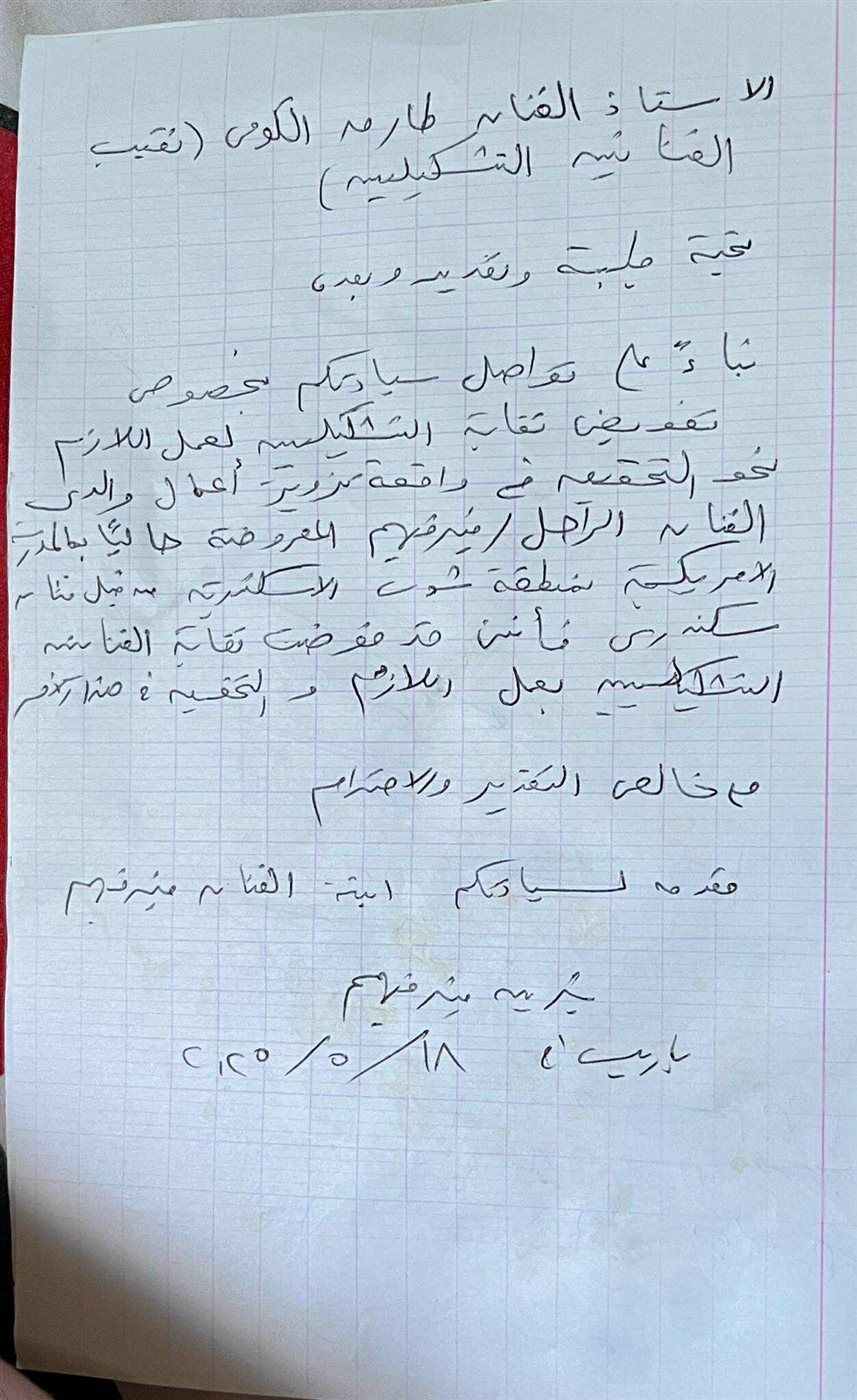 الاستاذ الفنان طارق الكومى (نقيب
الفنانين التشكيليين)
تحية طيبة وتقدير وبعد،
بناءً على تواصل سيادتكم بخصوص
تفويض نقابة التشكيليين لعمل اللازم
نحو التحقيق فى واقعة تزوير أعمال والدى
الفنان الراحل / منير فهيم المعروضة حاليًا بالمدرسة
الامريكية بمنطقة شوت الاسكندرية من قبل فنان
سكندرى فأننى قد فوضت نقابة الفنانين
التشكيليين بعمل اللازم و التحقيق فى هذا الأمر
مع خالص التقدير والاحترام
مقدمه لسيادتكم ابنة الفنان منير فهيم
منير فهيم
باريس فى ١٨/٥/٢٠٢٥